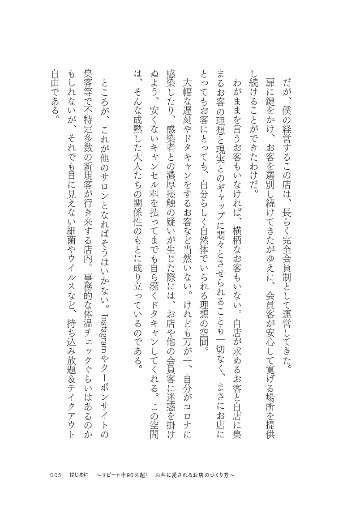 だが、僕の経営するこの店は、長らく完全会員制として運営してきた。
扉に鍵をかけ、お客を選別し続けてきたがゆえに、会員客が安心して寛げる場所を提供
し続けることができたわけだ。
わがままを言うお客もいなければ、横柄なお客もいない。自店が求めるお客と自店に集
まるお客の理想と現実とのギャップに悶々とさせられることも一切なく、まさにお店に
とってもお客にとっても、自分らしく自然体でいられる理想の空間。
大幅な遅刻やドタキャンをするお客など当然いない。けれども万が一、自分がコロナに
感染したり、感染者との濃厚接触の疑いが生じた際には、お店や他の会員客に迷惑を掛け
ぬよう、安くないキャンセル料を払ってまでも自ら潔くドタキャンしてくれる。この空間
は、そんな成熟した大人たちの関係性のもとに成り立っているのである。
ところが、これが他のサロンとなればそうはいかない。Instagramやクーポンサイトの
集客等で不特定多数の新規客が行き来する店内。事務的な体温チェックぐらいはあるのか
もしれないが、それでも目に見えない細菌やウイルスなど、持ち込み放題＆テイクアウト
自由である。
005 はじめに 〜リピート率90%超! お客に愛されるお店のつくり方〜